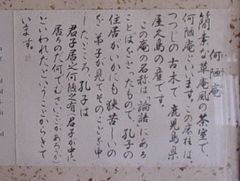 何陋庵
簡素な草庵風の茶室で、
何陋庵といいます。この床柱は、
つつじの古木で 鹿児島県
屋久島の産です。
この庵の名称は論語にある
ことばをとったもので、孔子の
住居がいかにも狭苦しいの
を弟子が見てそのことを申
したところ、孔子は
君子居之何陋之有 君子が之に
居るのだ何でむさいことがあろうか
といわれたということからきて
います。